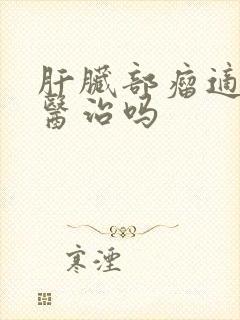 肝臟部瘤適
醫治吗
寒湮